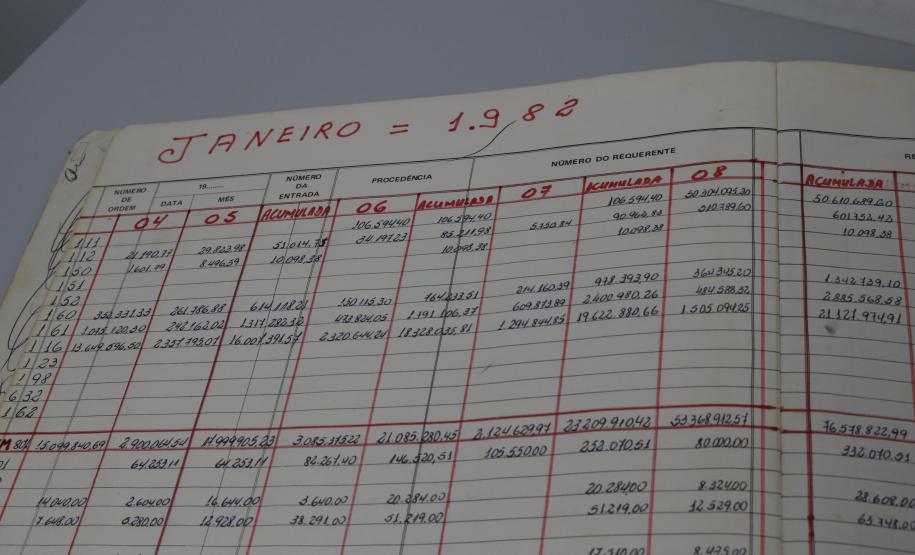 JANEIRO = 1.982
NÚMERO DE ORDEM 19....... DATA MÊS NÚMERO DA ENTRADA PROCEDÊNCIA NÚMERO DO REQUERENTE
04 05 ACUMULADA 06 ACUMULADA 07 ACUMULADA 08 ACUMULADA
111 106.594.40 106.594.40 106.594.40 50.504.095.20 50.610.689.60
112 21.190.77 29.823.98 51.014.75 34.197.23 85.211.98 5.750.84 90.962.82 510.789.60 601.752.42
150 1.601.79 8.496.59 10.098.38 10.098.38 10.098.38 10.098.38
151
152
160 352.331.33 261.786.88 614.118.21 150.115.30 764.233.51 214.160.39 978.393,90 364.345.20 1.342.739,10
161 1.075.120.30 242.162.02 1.317.282.32 473.824.05 1.791.106.37 609.873.89 2.400.980.26 484.588.32 2.885.568.58
116 13.649.596,50 2.357.795,07 16.007.391.57 2.320.644.24 18.328.035,81 1.294.844.85 19.622.880,66 1.505.094.25 21.127.974,91
123
198
632
162
15.099.840,69 2.900.064.54 17.999.905,23 3.085.375.22 21.085.280,45 2.124.629,97 23.209.910,42 53.368.912.57 76.578.822,99
64.253,11 64.253,11 82.267.40 146.520,51 105.550,00 252.070,51 80.000.00 332.070,51
14.040.00 2.604.00 16.644.00 3.640.00 20.284.00 20.284,00 8.324.00 28.608.00
7.648.00 5.280.00 12.928.00 38.291.00 51.219.00 51.219.00 12.529.00 63.748.00
17.310.00 8.475.00